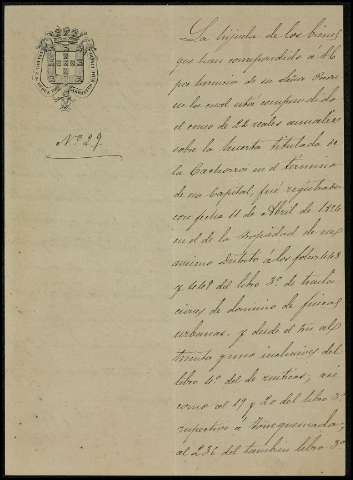 Nº 29.
La hijuela de los bienes
que han correspondido á
por herencia de su Señora
en la cual está comprendido
el censo de 22 reales anuales
sobre la huerta titulada de
la Cachorra en el término
de esa Capital, fué registrada
con fecha 11 de Abril de
en el de la Propiedad de ese
mismo distrito á los folios 448
y 448 del libro 3º de trasla
ciones de dominio de fincas
urbanas, y desde el al
treinta y uno inclusives del
libro 4º del de rusticas, así
como al 19 y 20 del libro 3º
respectivo á Torquemada,
al 236 del tambien libro 3º